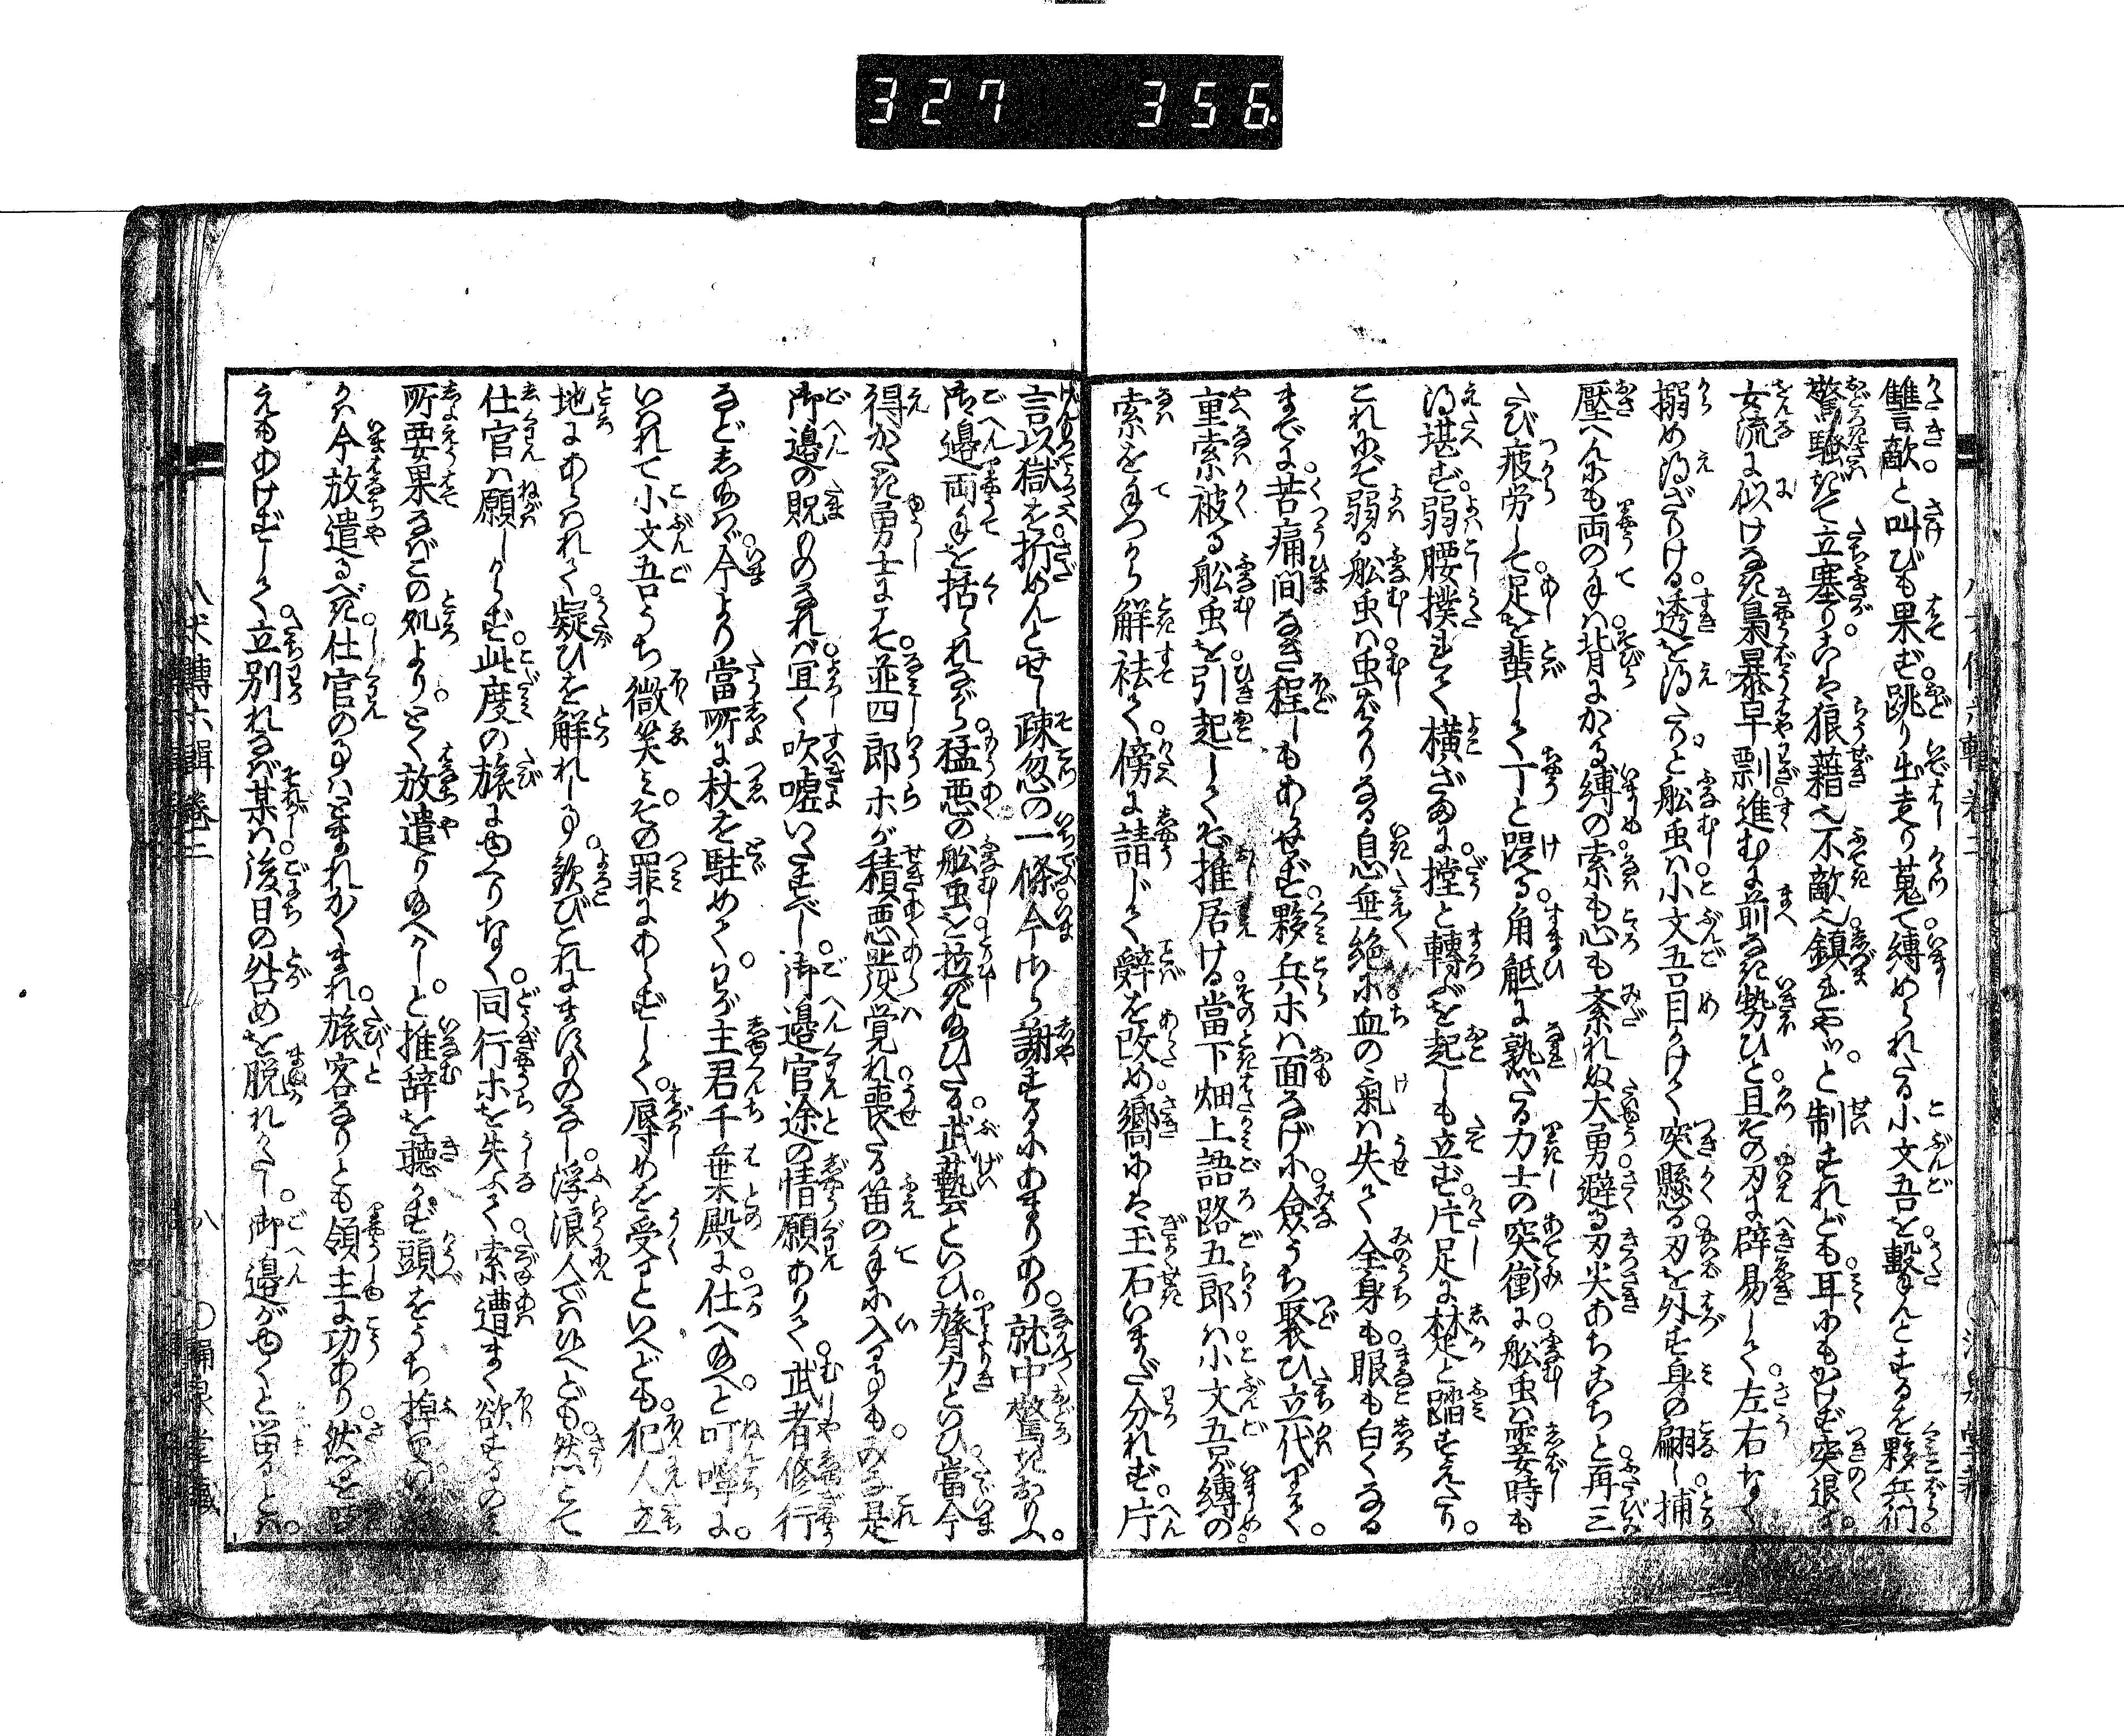 327 356
讐敵と叫びも果ず跳り出走り蒐て縛められたる小文吾を撃んとするを夥兵們
驚騒ぎて立塞りこは狼藉也不敵也鎮れやッと制すれども耳にもかけず突退て
女流に似げなき梟暴早剽進むに前なき勢ひと且その刃に辟易して左右なく
搦め得ざりける透を得たりと舩虫は小文吾目かけて突懸る刃を外す身の飜し捕
壓へんにも両の手は背にかゝる縛の索も心も紊れぬ大勇避る刃尖あちこちと再三
たび疲労して足を蜚して丁と蹴る角觝に熟たる力士の突衝に舩虫は霎時も
得堪ず弱腰撲れて横ざまに撐と轉ぶを起しも立ず片足に楚と踏すえたり
これにぞ弱る舩虫は虫ばかりなる息垂絶に血の氣は失て全身も眼も白くなる
までに苦痛間なき程しもあらせず夥兵ホは面なげに僉うち聚ひ立代りて
重索被る舩虫を引起してぞ推居ける當下畑上語路五郎は小文吾が縛の
索を手づから解祛て傍に請じて辞を改め嚮には玉石いまだ分れず片
言以獄を折めんとせし疎忽の一條今さら謝するにあまりあり就中驚きおもふ
御邊両手を括られながら猛悪の舩虫を拉ぎ給ひたる武藝といひ膂力といひ當今
得がたき勇士にこそ並四郎ホが積悪發覚れ喪たる笛の手に入る事もみな是
御邊の貺ものなれば宜く吹嘘いたすべし御邊官途の情願ありて武者修行
などし給はゞ今より當所に杖を駐めてわが主君千葉殿に仕へ給へと叮嚀に
いはれて小文吾うち微笑みその罪にあらずして辱めを受たといへども犯人立
地にあらはれて疑ひを解れし事歓びこれにますものなし浮浪人では候へども然とて
仕官は願しからず此度の旅にゆくりなく同行ホを失ふて索遭まく欲するのみ
所要果なばこの処よりとく放遣り給へかしと推辞を聴かず頭をうち掉
今放遣るべき仕官の事はともれかくまれ旅客なりとも領主に功あり然を
えもおけずして立別れなば某は後日の咎めを脱れがたし御邊がゆくと留ると
八犬傳六輯巻二 八